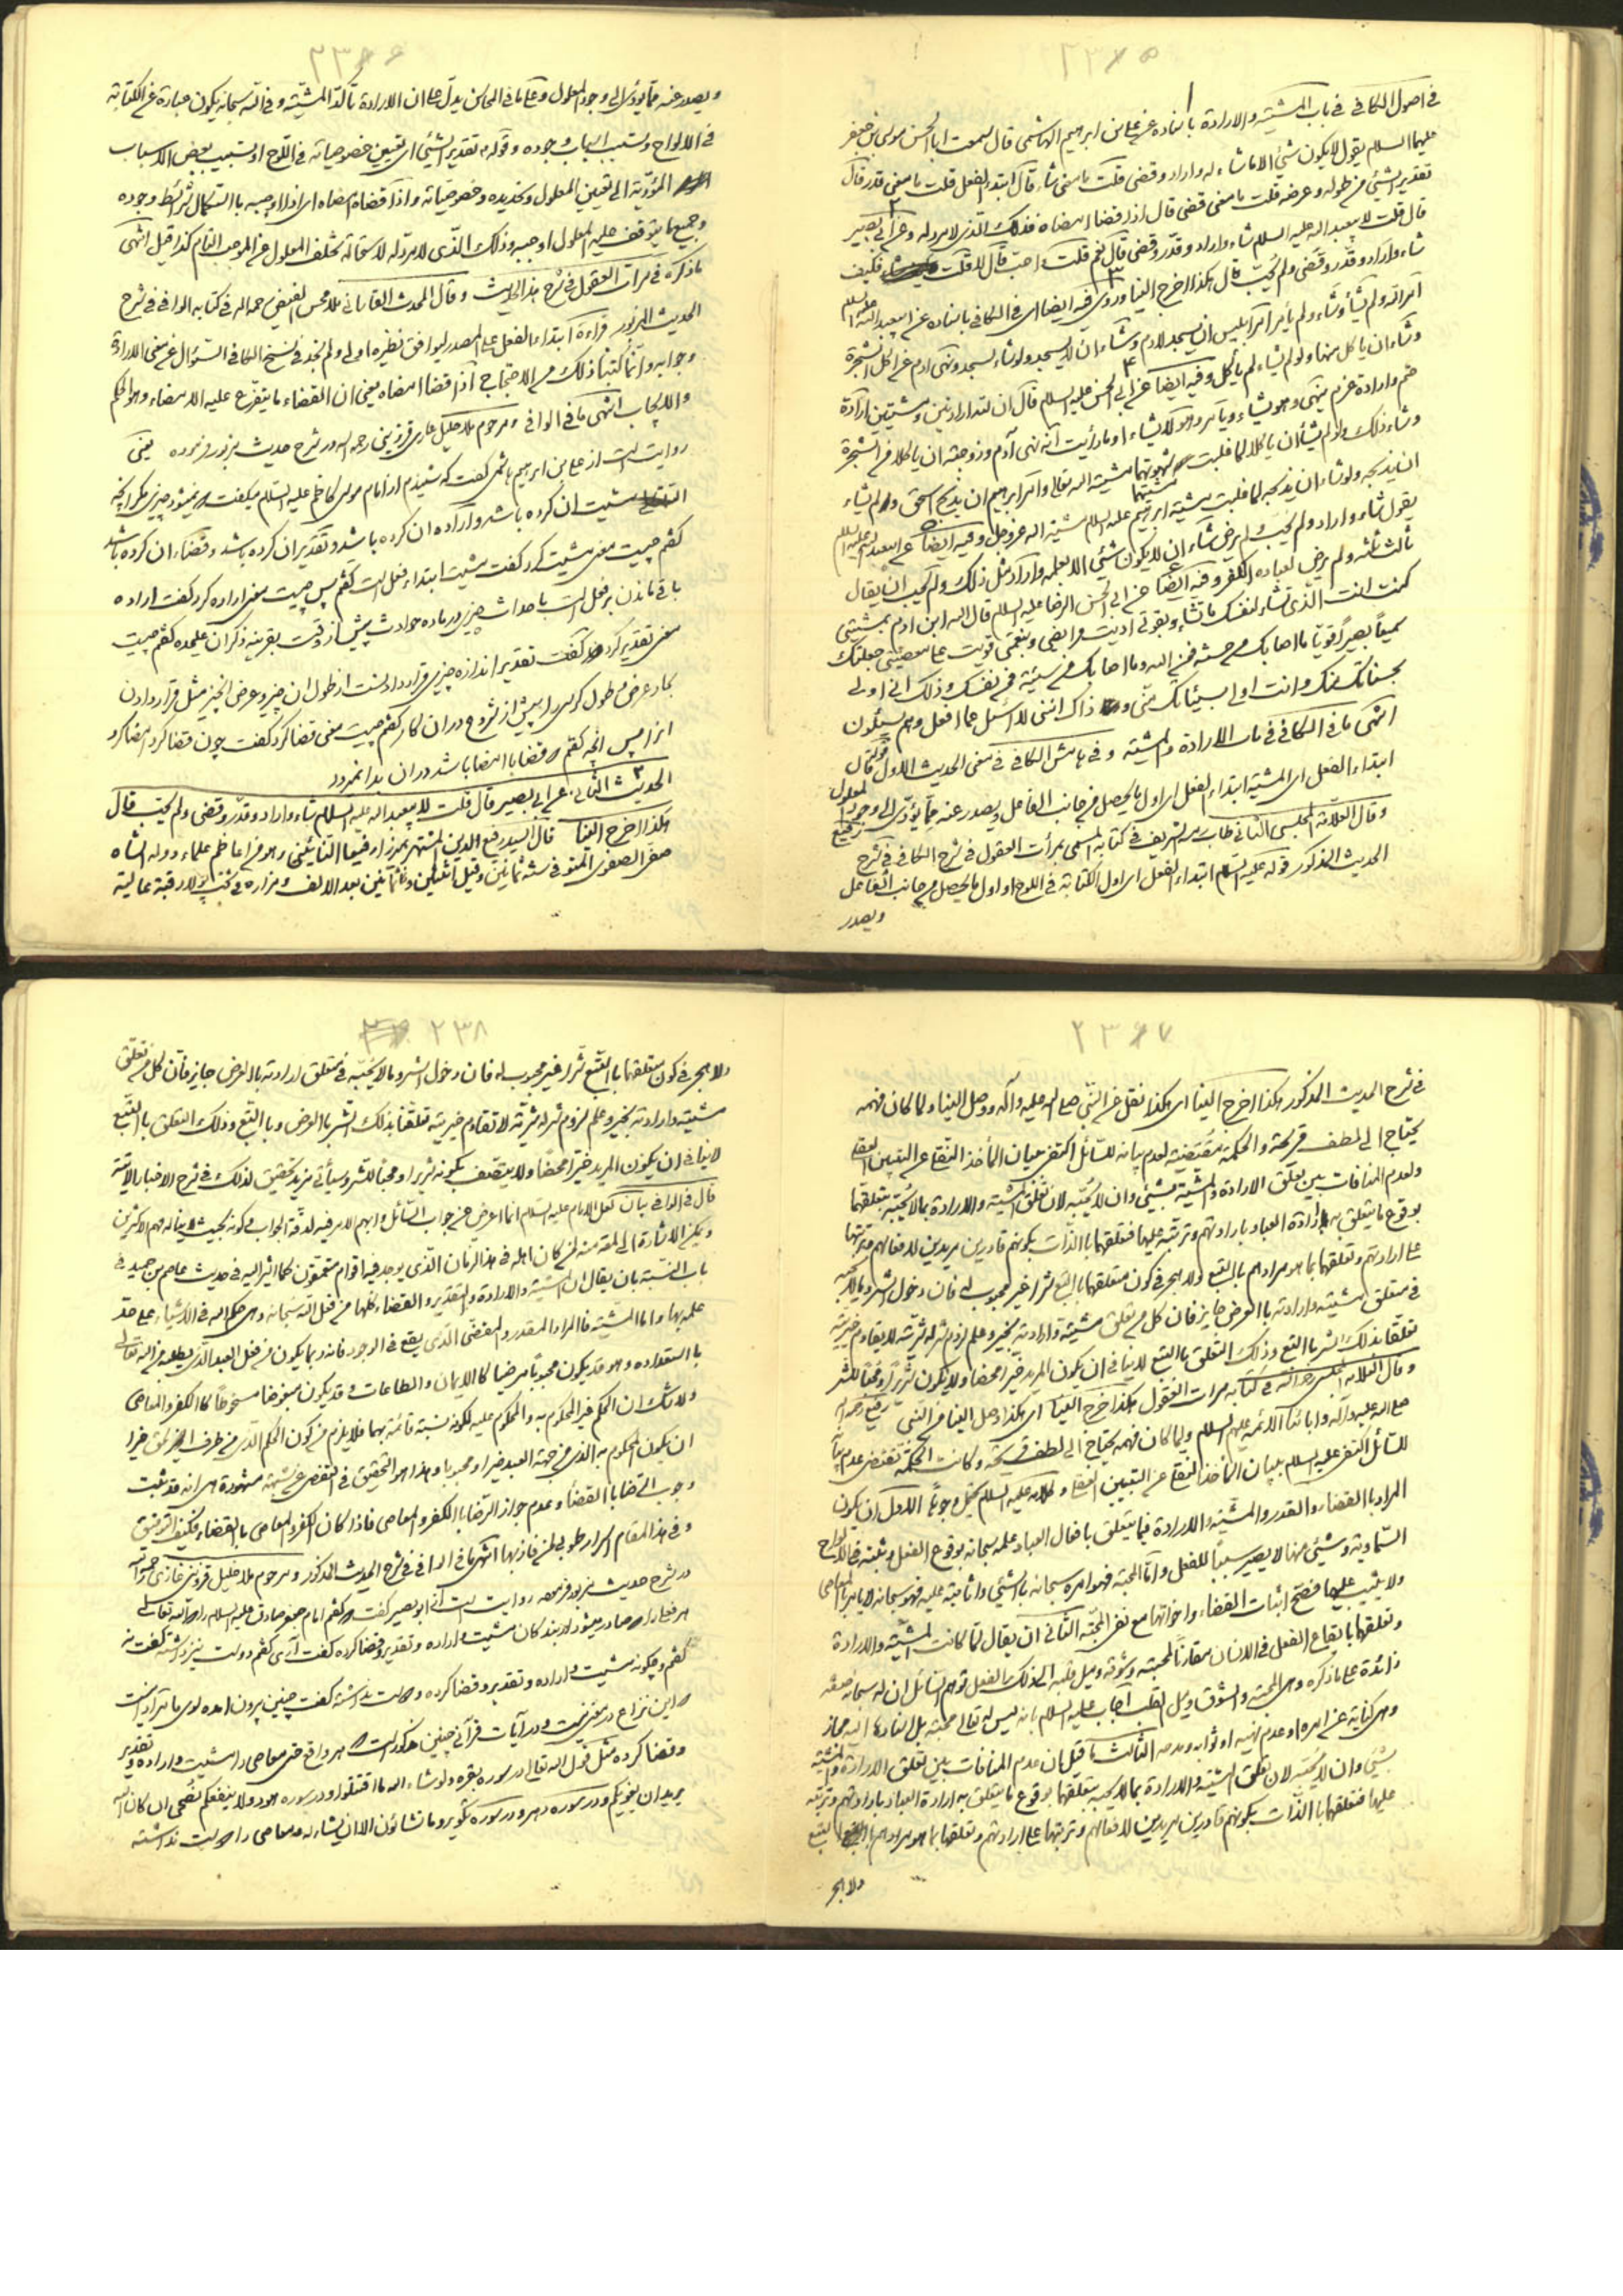 ٢٣٥
في اصول الكافي في باب المشيّة والارادة باسناده عن علي بن ابراهيم الهاشمي قال سمعت ابا الحسن موسى بن جعفر
عليهما السلام يقول لا يكون شيء الا ما شاء الله واراد وقضى قلت ما معنى شاء قال ابتداء الفعل قلت ما معنى قدر قال
تقدير الشيء من طوله وعرضه قلت ما معنى قضى قال اذا قضا امضاه فذلك الذي لا مردّ له وعن ابي بصير
قال قلت لابيعبد الله عليه السلام شاء واراد وقدّر وقضى قال نعم قلت واحبّ قال لا قلت فكيف
شاء واراد وقدّر وقضى ولم يحبّ قال هكذا اخرج الينا وروى فيه ايضا اي في الكافي باسناده عن ابيعبد الله عليه السلام
امر الله ولم يشأ وشاء ولم يأمر امر ابليس ان يسجد لادم وشاء ان لا يسجد ولو شاء لسجد ونهى ادم عن اكل الشجرة
وشاء ان ياكل منها ولو لم يشاء لم يأكل وفيه ايضا عن ابي الحسن عليه السلام قال ان لله ارادتين ومشيتين ارادة
حتم وارادة عزم ينهى وهو يشاء ويأمر وهو لا يشاء او ما رأيت انه نهى آدم وزوجته ان ياكلا من الشجرة
وشاء ذلك ولو لم يشأ ان ياكلا لما غلبت شهوتهما مشيتهما مشية الله تعالى وامر ابراهيم ان يذبح اسحق ولم يشاء
ان يذبحه ولو شاء ان يذبحه لما غلبت مشية ابراهيم عليه السلام مشية الله عز وجل وفيه ايضا عن ابيعبد الله عليه السلام
يقول شاء واراد ولم يحبّ ولم يرض شاء ان لا يكون شيء الا بعلمه واراد مثل ذلك ولم يحب ان يقال
ثالث ثلثه ولم يرض لعباده الكفر وفيه ايضا عن ابي الحسن الرضا عليه السلام قال الله ابن ادم بمشيتي
كنت انت الذي تشاء لنفسك ما تشاء وبقوتي اديت فرايضي وبنعمتي قويت على معصيتي جعلتك
سميعاً بصيراً قوياً ما اصابك من حسنة فمن الله وما اصابك من سيئة فمن نفسك وذلك اني اولى
بحسناتك منك وانت اولى بسيئاتك مني وذاك انني لا اسئل عما افعل وهم يسئلون
انتهى ما في الكافي في باب الارادة والمشيّة وفي هامش الكافي في معنى الحديث الاول قوله قال
ابتداء الفعل اي المشية ابتداء الفعل اي اول ما يحصل من جانب الفاعل ويصدر عنه مما يؤدى الى وجود المعلول
وقال العلامة المجلسي الثاني طاب رمسه الشريف في كتابه المسمى بمرأت العقول في شرح الكافي في شرح
الحديث المذكور قوله عليه السلام ابتداء الفعل اي اول الكتابة في اللوح او اول ما يحصل من جانب الفاعل
ويصدر
٢٣٦
ويصدر عنه مما يؤدى الى وجود المعلول وعلى ما في المحاسن يدل على ان الارادة تأكّد المشيّة وفي الله سبحانه يكون عبارة عن الكتابة
في الالواح وتسبب اسباب وجوده وقوله تقدير الشيء اي تعيين خصوصياته في اللوح او تسبيب بعض الاسباب
المؤدّية الى تعيين المعلول وتحديده وخصوصياته واذا قضاه امضاه اي اذا اوجبه باستكمال شرائط وجوده
وجميع ما يتوقف عليه المعلول اوجبه وذلك الذي لا مردّ له لاستحالة تخلف المعلول عن الموجب التام كذا قيل انتهى
ما ذكره في مرات العقول في شرح هذا الحديث وقال المحدث القاساني ملا محسن الفيض رحمه الله في كتابه الوافي في شرح
الحديث المزبور قراءة ابتداء الفعل على المصدر ليوافق نظيره اولى ولم نجد في نسخ الكافي السؤال عن معنى الارادة
وجوابه وانما كتبنا ذلك من الاحتجاج اذا قضا امضاه يعني ان القضاء ما يتفرّع عليه الامضاء وهو الحكم
والايجاب انتهى ما في الوافي ومرحوم ملا خليل غازي قزويني رحمه الله در شرح حديث مزبور فرموده يعني
روايت است از علي بن ابراهيم هاشمي گفت كه شنيدم از امام موسى كاظم عليه السلام ميگفت نميشود چيزي مگر آنچه
مشيت ان كرده باشد واراده ان كرده باشد وتقدير ان كرده باشد وقضاء ان كرده باشد
گفتم چيست معنى مشيت كرد گفت مشيت ابتداء فعل است گفتم پس چيست معنى اراده كرد گفت اراده
باقي ماندن بر فعل است باحداث چيزي در ماده حوادث پيش از وقت بقرينه ذكر ان عليحده گفتم چيست
معنى تقدير كرد گفت تقدير اندازه چيزي قرار دادنست از طول ان چيز وعرض انچيز مثل قرار دادن
نجار عرض وطول كرسي را پيش از شروع در ان كار گفتم چيست معنى قضا كرد گفت چون قضا كرد امضا كرد
انرا پس انچه گفتم قضا با امضا باشد در ان بدا نميرود
الحديث الثاني عن ابي بصير قال قلت لابيعبد الله عليه السلام شاء واراد وقدّر وقضى ولم يحبّ قال
هكذا اخرج الينا قال السيد رفيع الدين المشتهر بميرزا رفيعا النائيني وهو من اعاظم علماء دوله الشاه
صفي الصفوي المتوفى سنه ثمانين وقيل اثنتين وثمانين بعد الالف ومزاره قبة عالية
٢٣٧
في شرح الحديث المذكور هكذا اخرج الينا اي هكذا نقل عن النبي صلى الله عليه وآله ووصل الينا ولما كان فهمه
يحتاج الى لطف قريحة والحكمة مقتضية لعدم بيانه للسائل اكتفى ببيان المأخذ النقلي عن التبيين العقلي
ولعدم المنافات بين تعلق الارادة والمشية بشيء وان لا يحبّه لان تعلق المشية والارادة بما لا يحبّه بتعلقهما
بوقوع ما يتعلق به ارادة العباد بارادتهم وترتبه عليها فتعلقها بالذات بكونهم قادرين مريدين لافعالهم وترتبها
على ارادتهم وتعلقها بما هو مرادهم بالتبع ولا حجر في كون متعلقها بالتبع شرا غير محبوب له فان دخول الشر وما لا يحبه
في متعلق مشيته وارادته بالعرض جايز فان كل من تعلق مشيته وارادته بخير وعلم لزوم شر له شريته لا تقاوم خيريته
تعلقا بذلك الشر بالتبع وذلك التعلق بالتبع لا ينافي ان يكون المريد خيرا محضا ولا يكون شريرا ومحبا للشر
وقال العلامه المجلسي رحمه الله في كتابه مرات العقول هكذا خرج الينا اي هكذا وصل الينا من النبي
صلى الله عليه وآله وابائنا الائمة عليهم السلام ولما كان فهمه يحتاج الى لطف قريحه وكانت الحكمة تقتضي عدم بيانه
للسائل اكتفى عليه السلام ببيان المأخذ النقلي عن التبيين العقلي وكلامه عليه السلام يحتمل وجوها الاول ان يكون
المراد بالقضاء والقدر والمشية والارادة فيما يتعلق بافعال العباد علمه سبحانه بوقوع الفعل وثبته في الالواح
السماوية وشيء منها لا يصير سببا للفعل واما المحبة فهو امره سبحانه بالشيء واثابته عليه فهو سبحانه لا يامر بالمعاصي
ولا يثيب عليها فصحّ اثبات القضاء واخواتها مع نفي المحبّة الثاني ان يقال لما كانت المشية والارادة
وتعلقها بايقاع الفعل في الانسان مقارنا لمحبته وشوقه وميل قلبه الى ذلك الفعل توهم السائل ان له سبحانه صفه
زائدة على ما ذكره وهي المحبة والشوق وميل القلب اجاب عليه السلام بانه ليس له تعالى محبة بل اسنادها اليه مجاز
وهي كناية عن امره او عدم نهيه او ثوابه ومدحه الثالث ما قيل ان عدم المنافات بين تعلق الارادة والمشية
بشيء وان لا يحبّه لان تعلق المشية والارادة بما لا يحبه بتعلقهما بوقوع ما يتعلق به ارادة العباد بارادتهم وترتبه
عليها فتعلقها بالذات بكونهم قادرين مريدين لافعالهم وترتبها على ارادتهم وتعلقها بما هو مرادهم بالتبع
ولا حجر
٢٣٨
ولا حجر في كون متعلقها بالتبع شرا غير محبوب له فان دخول الشر وما لا يحبّه في متعلق ارادته بالعرض جايز فان كل من تعلق
مشيته وارادته بخير وعلم لزوم شر له شريته لا تقاوم خيريته تعلقا بذلك الشر بالعرض وبالتبع وذلك التعلق بالتبع
لا ينافي ان يكون المريد خيرا محضا ولا يتصف بكونه شريرا ومحبا للشر وسيأتي مزيد تحقيق لذلك في شرح الاخبار الاتية
قال في الوافي بيان لعل الامام عليه السلام انما اعرض عن جواب السائل وابهم الامر فيه لدقة الجواب وكونه بحيث لا يناله فهم الاكثرين
ويمكن الاشارة الى لمعة منه لمن كان اهله في هذا الزمان الذي يوجد فيه اقوام متعمقون كما اشير اليه في حديث عاصم بن حميد في
باب النسبة بان يقال ان المشية والارادة والتقدير والقضاء كلها من فعل الله سبحانه وهي حكم الله في الاشياء على حد
علمه بها واما المشيّة فالمراد المقدر والمقضى الذي يقع في الوجود فانه ربما يكون من فعل العبد الذي يطلبه من الله تعالى
باستعداده وهو قد يكون محبوبا مرضيا كالايمان والطاعات وقد يكون مبغوضا مسخوطا كالكفر والمعاصي
ولا شك ان الحكم غير المحكوم به والمحكوم عليه لكونه نسبة قائمة بهما فلا يلزم من كون الحكم الذي من طرف الحق خيرا
ان يكون المحكوم به الذي من جهة العبد خيرا ومحبوبا وهذا هو التحقيق في التفصي عن شبهة مشهورة هي انه قد ثبت
وجوب الرضا بالقضاء وعدم جواز الرضا بالكفر والمعاصي فاذا كان الكفر والمعاصي بالقضاء فكيف التوفيق
وفي هذا المقام اسرار طوبى لمن فاز بها انتهى ما في الوافي في شرح الحديث المذكور ومرحوم ملا خليل قزويني غازي رحمه الله
در شرح حديث مزبور فرموده روايت است از ابو بصير گفت كه گفتم امام جعفر صادق عليه السلام را كه الله تعالى
هر فعل را كه صادر ميشود از بندگان مشيت واراده وتقدير وقضا كرده گفت آرى گفتم دوست نيز داشته گفت نه
گفتم وچگونه مشيت واراده وتقدير وقضا كرده ودوست نداشته گفت چنين بيرون امده سوى ما
اين نزاع در معنى نيست ودر آيات قرآني چنين مذكور است كه هر واقع حتى معاصي را مشيت واراده وتقدير
وقضا كرده مثل قول الله تعالى در سوره بقره ولو شاء الله ما اقتتلوا ودر سوره هود ولا ينفعكم نصحي ان كان الله
يريد ان يغويكم ودر سوره دهر ودر سوره تكوير وما تشاؤن الا ان يشاء الله ومعاصي را دوست نداشته